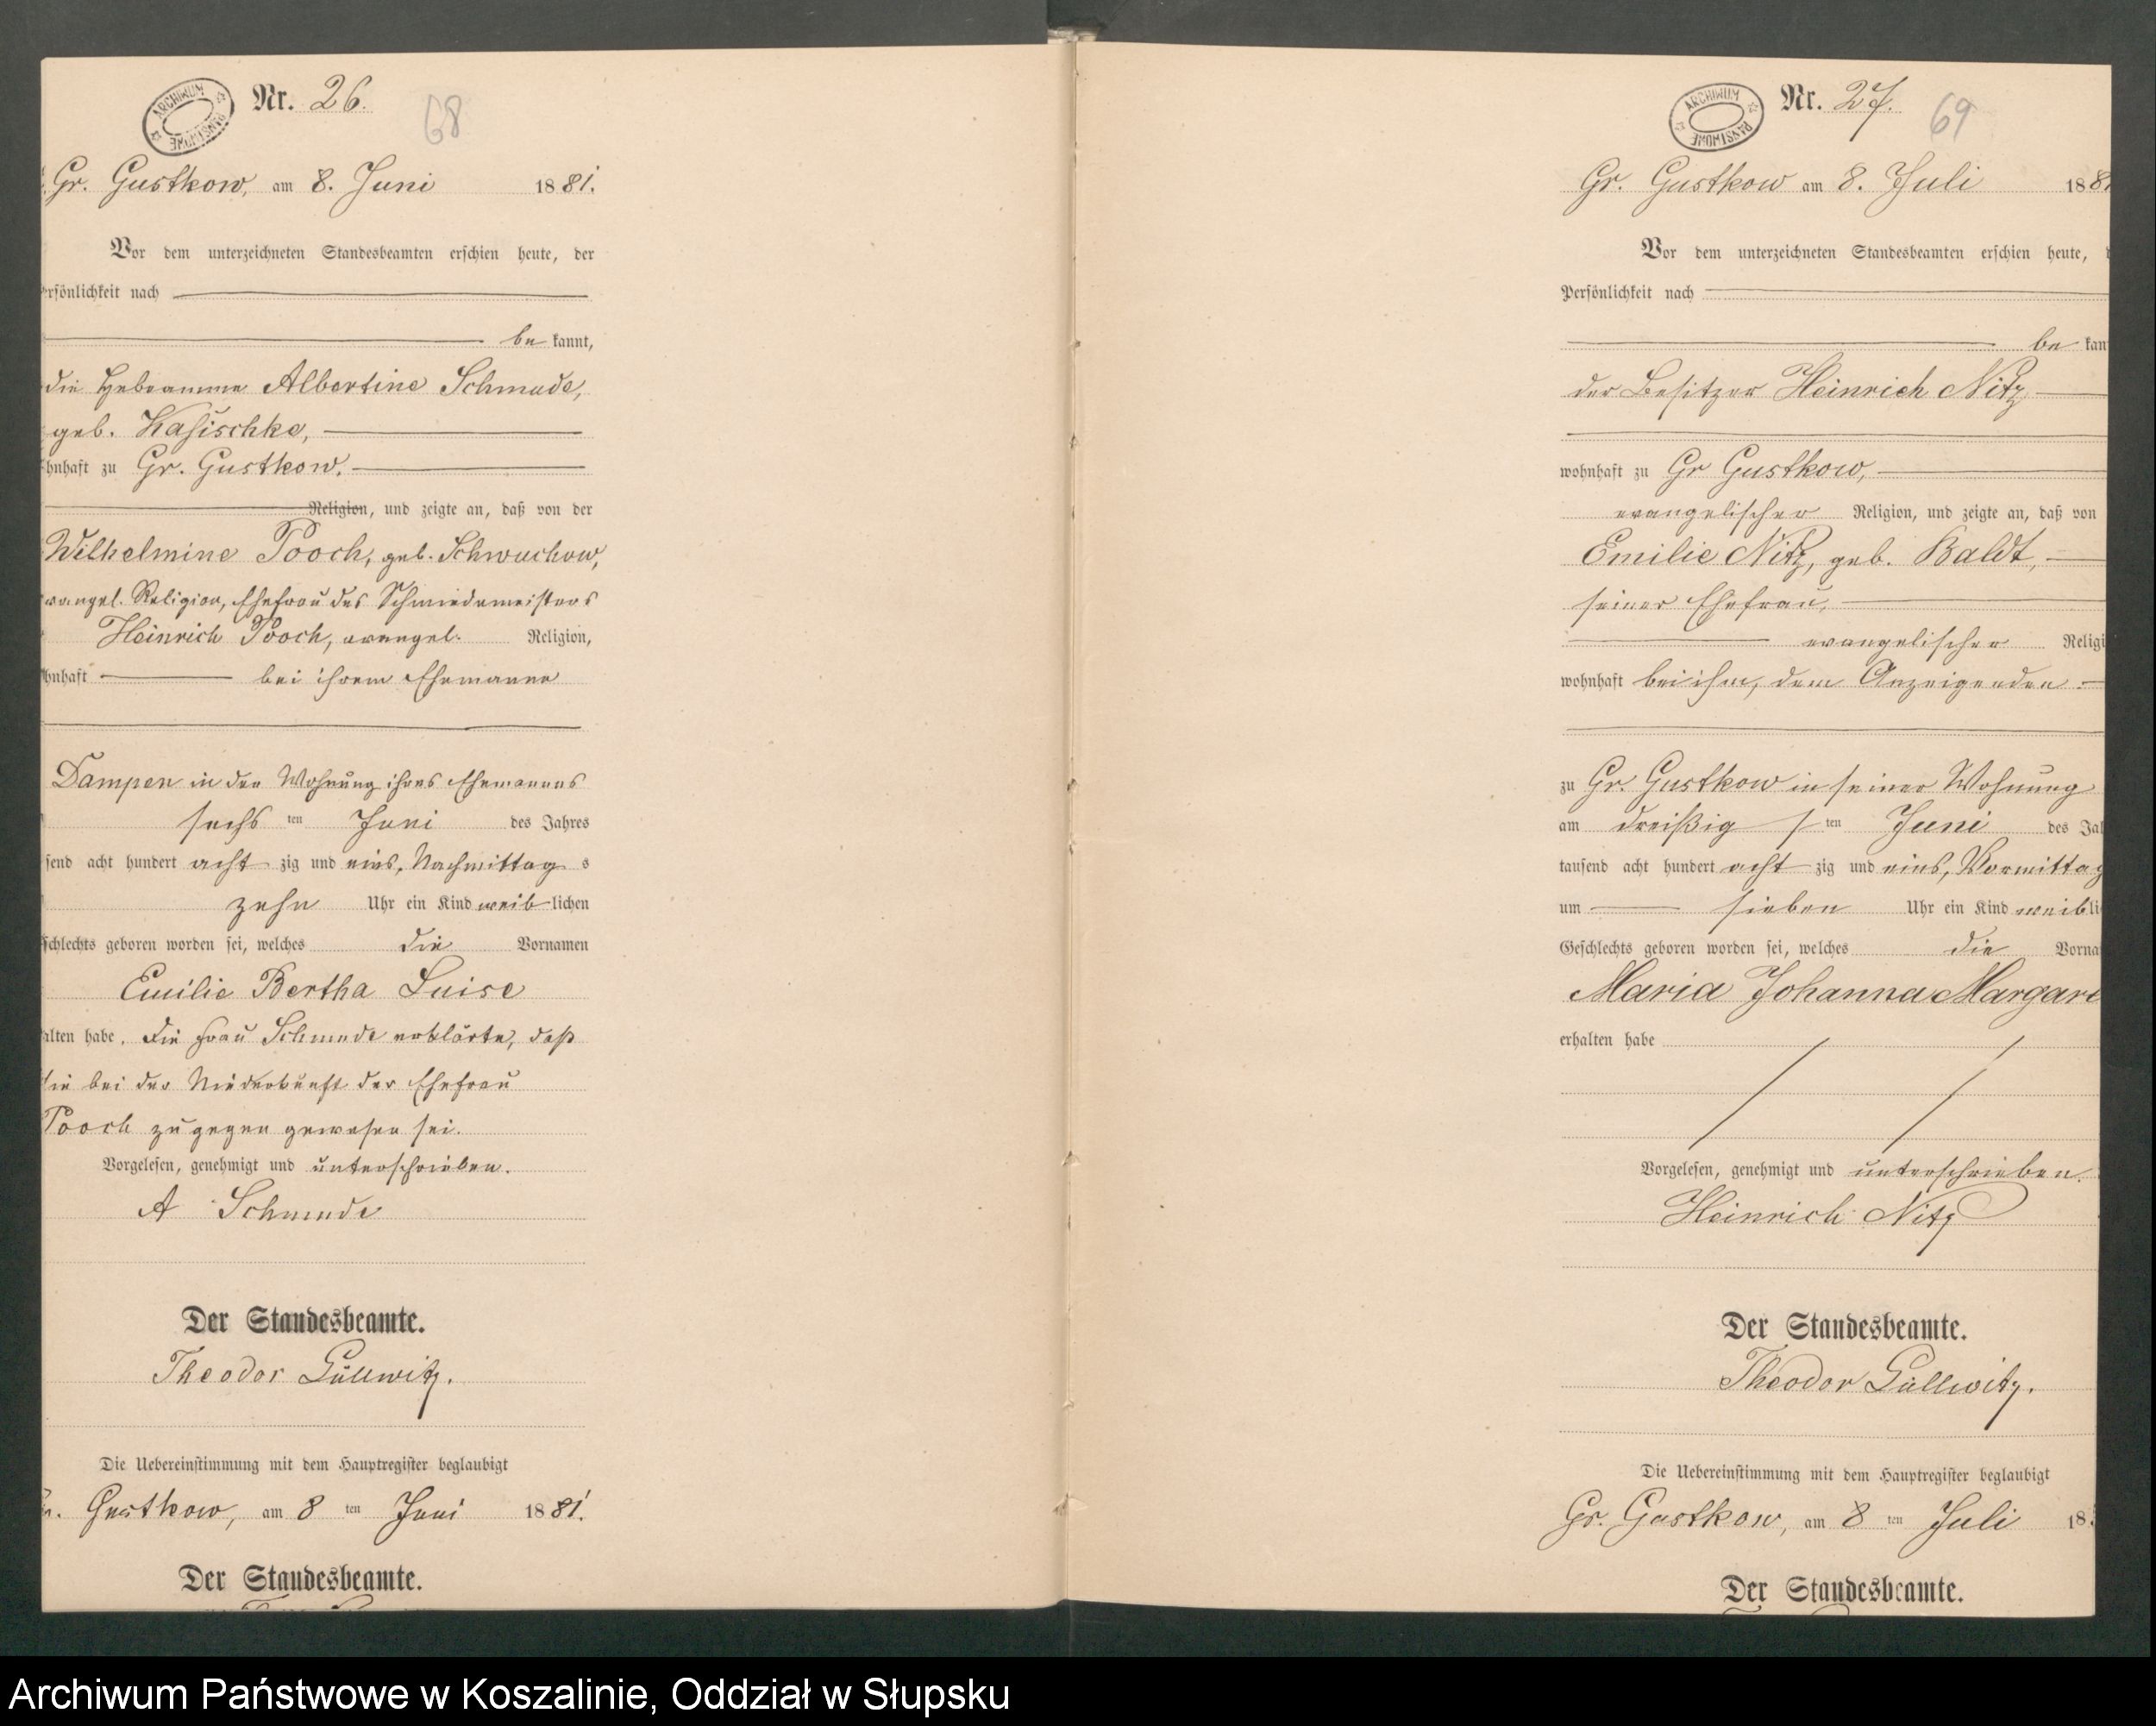 ARCHIWUM PAŃSTWOWE
Nr. 26.
68
Gr. Gustkow, am 8. Juni 1881.
Vor dem unterzeichneten Standesbeamten erschien heute, der
rsönlichkeit nach
be kannt,
die Hebeamme Albertine Schmude,
geb. Kasischke,
hnhaft zu Gr. Gustkow.
Religion, und zeigte an, daß von der
Wilhelmine Pooch, geb. Schwuchow,
vangel. Religion, Ehefrau des Schmiedemeisters
Heinrich Pooch, evangel. Religion,
hnhaft bei ihrem Ehemanne
Dampen in der Wohnung ihres Ehemannes
sechs ten Juni des Jahres
send acht hundert acht zig und eins, Nachmittag s
zehn Uhr ein Kind weib lichen
schlechts geboren worden sei, welches die Vornamen
Emilie Bertha Luise
alten habe. Die Frau Schmude erklärte, daß
sie bei der Niederkunft der Ehefrau
Pooch zugegen gewesen sei.
Vorgelesen, genehmigt und unterschrieben.
A Schmude
Der Standesbeamte.
Theodor Güllwitz.
Die Uebereinstimmung mit dem Hauptregister beglaubigt
r. Gustkow, am 8 ten Juni 1881.
Der Standesbeamte.
ARCHIWUM PAŃSTWOWE
Nr. 27.
69
Gr. Gustkow am 8. Juli 188
Vor dem unterzeichneten Standesbeamten erschien heute, d
Persönlichkeit nach
be kan
der Besitzer Heinrich Nitz
wohnhaft zu Gr Gustkow,
evangelischer Religion, und zeigte an, daß von
Emilie Nitz, geb. Baldt,
seiner Ehefrau,
evangelischer Religi
wohnhaft bei ihm, dem Anzeigenden
zu Gr. Gustkow in seiner Wohnung
am dreißig s ten Juni des Ja
tausend acht hundert acht zig und eins, Vormittag
um sieben Uhr ein Kind weib li
Geschlechts geboren worden sei, welches die Vorna
Maria Johanna Margare
erhalten habe
Vorgelesen, genehmigt und unterschrieben.
Heinrich Nitz
Der Standesbeamte.
Theodor Güllwitz.
Die Uebereinstimmung mit dem Hauptregister beglaubigt
Gr. Gustkow, am 8 ten Juli 18
Der Standesbeamte.
Archiwum Państwowe w Koszalinie, Oddział w Słupsku